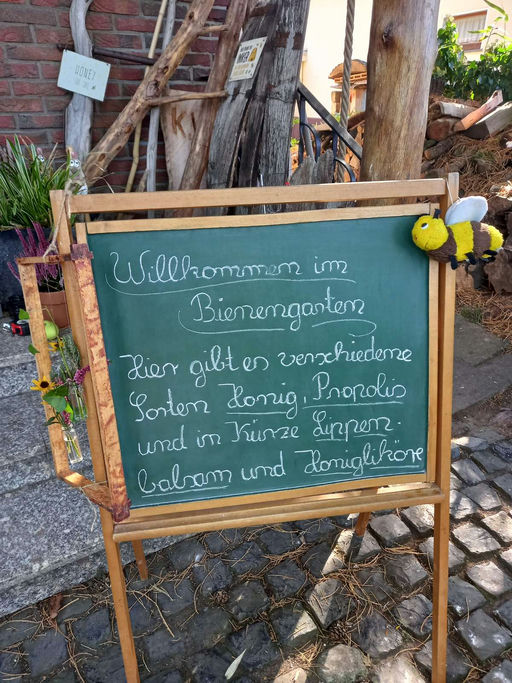 HONEY
Willkommen im
Bienengarten
Hier gibt es verschiedene
Sorten Honig, Propolis
und in Kürze Lippen-
balsam und Honigliköre